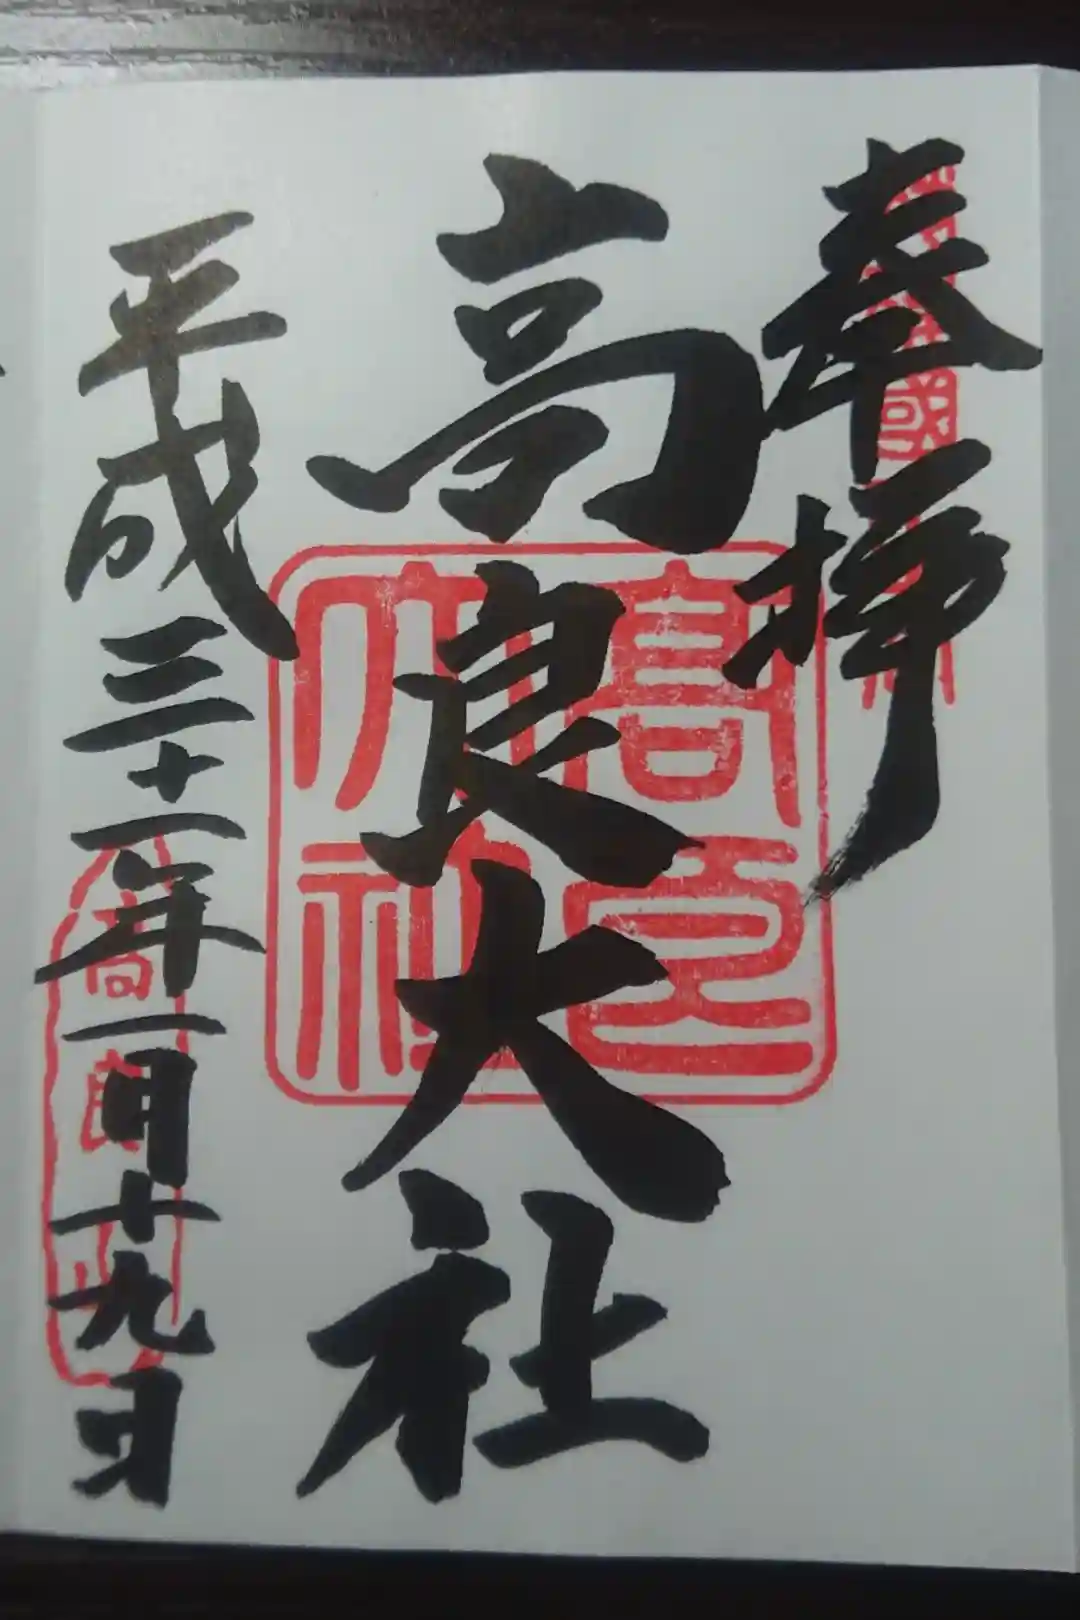 奉拝
高良大社
平成三十一年一月十九日
高良大社